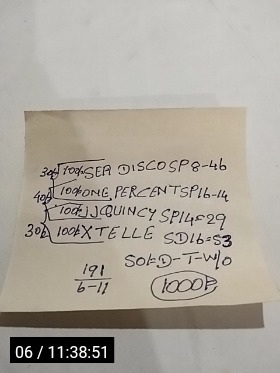 30₺ 100₺SEA DISCO SP8-46
40₺ 100₺ONE PERCENT SP16-14
100₺JJ QUINCY SP14=29
30₺ 100₺XTELLE SD16=53
50₺D-T-W/O
191
6-11
1000₺
06 / 11:38:51